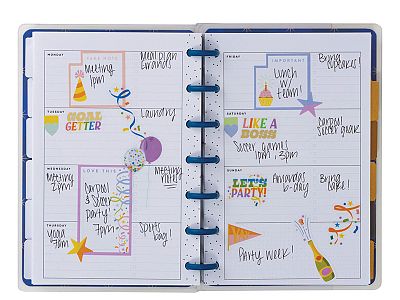 MONDAY
TAKE NOTE
Meeting
1pm
Meal plan
Errands
TUESDAY
GOAL
GETTER
Laundry
WEDNESDAY
Meeting
2pm
LOVE THIS
Carpool
& Soccer
party!
7pm
Meeting
notes!
THURSDAY
yoga
7am
Sports
bag!
FRIDAY
IMPORTANT
Lunch
w/
team!
Bring
cupcakes!
SATURDAY
LIKE A
BOSS
Soccer games
1pm, 3pm
Carpool
Soccer
SUNDAY
LET'S
PARTY!
Amanda's
b-day
Bring
cake!
Party week!